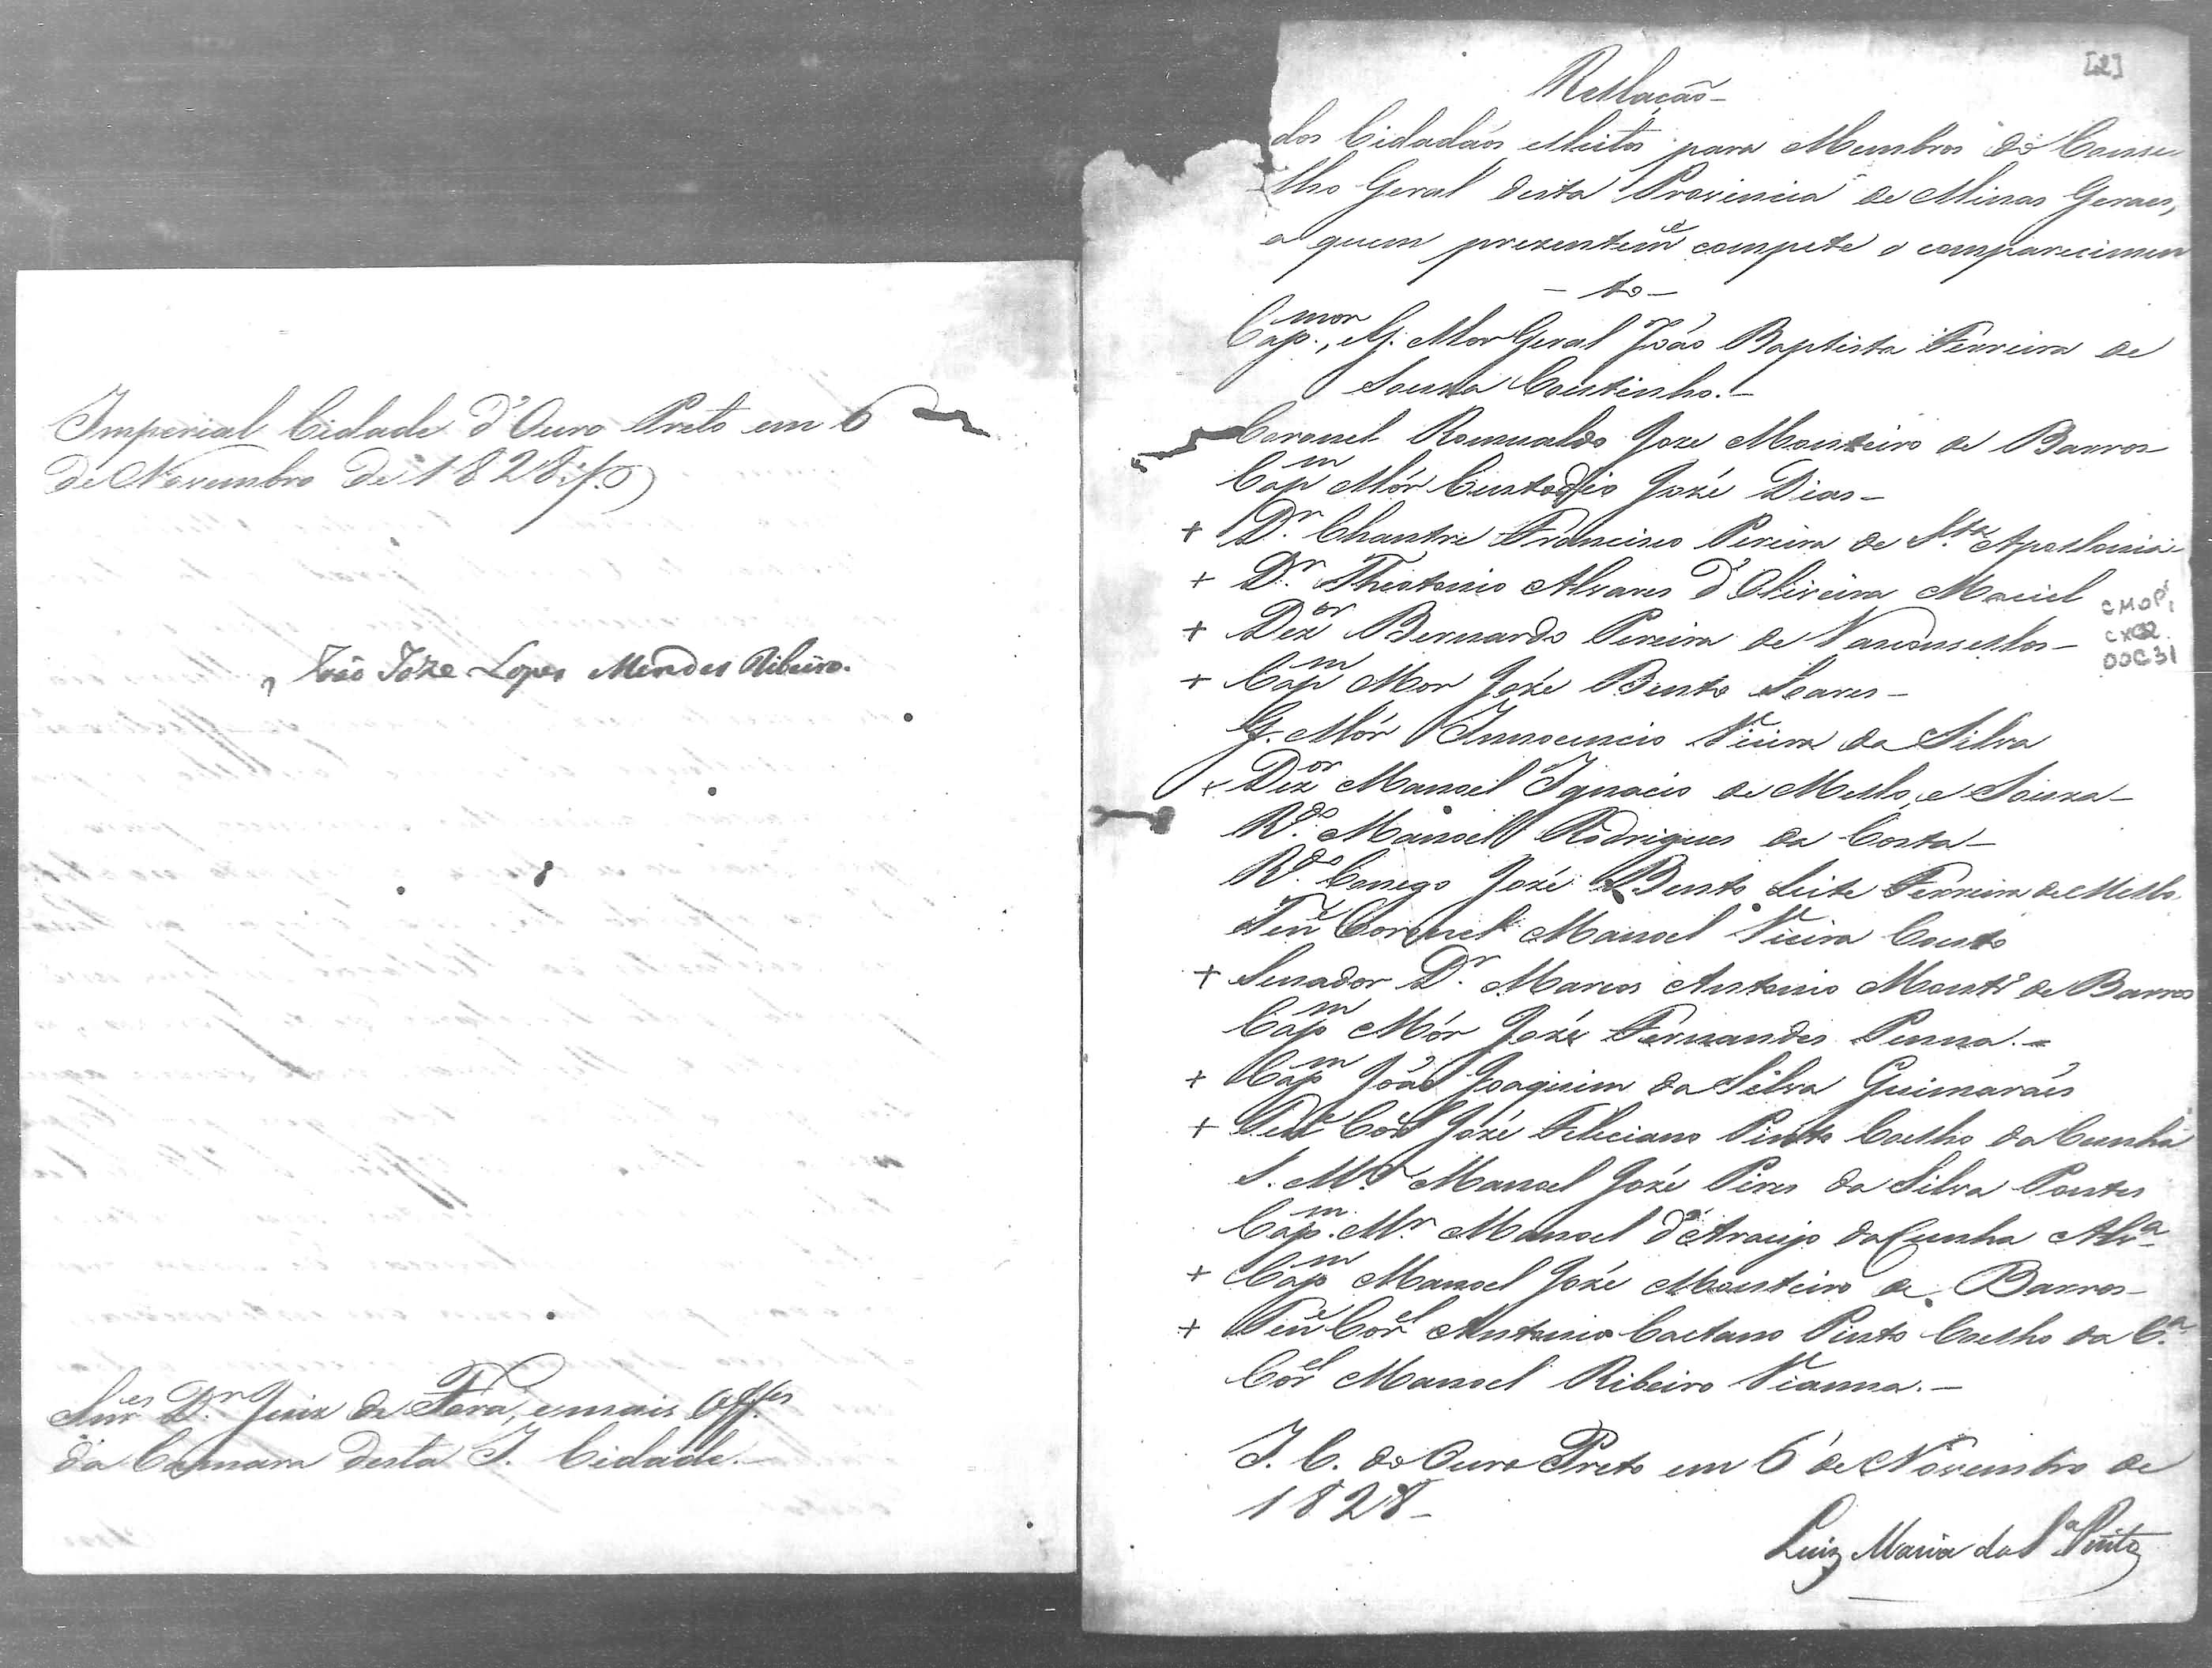 Imperial Cidade d'Ouro Preto em 6
de Novembro de 1828
João Joze Lopes Mendes Ribeiro.
Snr.es D.r Juiz de Fóra, e mais Off.es
da Camara desta I. Cidade.
[2]
Rellação
dos Cidadãos elleitos para Membros do Conse-
lho Geral desta Provincia de Minas Geraes,
a quem prezentem.e compete o comparecimen
- to -
Cap.mor, G. Mor Geral João Baptista Ferreira de
Souza Coutinho. -
Coronel Romualdo Joze Monteiro de Barros
Cap.m Mór Custodio Jozé Dias -
+ D.r Chantre Francisco Pereira de S.ta Apollonia
+ D.r Theotonio Alvares d'Oliveira Maciel
+ Dez.or Bernardo Pereira de Vasconsellos -
CMOP
CX02
DOC31
+ Cap.m Mor Jozé Bento Soares -
G. Mór Innocencio Vieira da Silva
+ Dez.or Manoel Ignacio de Mello, e Souza -
R.do Manoel Rodrigues da Costa -
R.do Conego Jozé Bento Leite Ferreira de Mello
Ten.e Coronel Manoel Vieira Couto
+ Senador D.r Marcos Antonio Montr.o de Barros
Cap.m Mór Jozé Fernandes Penna. -
+ Cap.m João Joaquim da Silva Guimarães
+ Ten.e Cor.el Jozé Feliciano Pinto Coelho da Cunha
S. M.r Manoel Jozé Pires da Silva Pontes
Cap.m M.r Manoel d'Araujo da Cunha Alv.a
+ Cap.m Manoel Jozé Monteiro de Barros -
+ Ten.e Cor.el Antonio Caetano Pinto Coelho da C.a
Cor.el Manoel Ribeiro Vianna. -
I. C. do Ouro Preto em 6 de Novembro de
1828 -
Luiz Maria da S.a Pinto